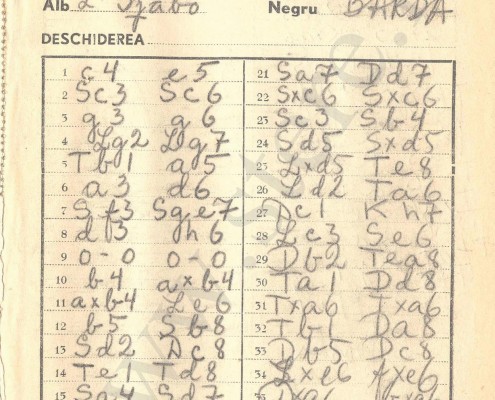 Alb L Szabo Negru BARDA
DESCHIDEREA
1 c4 e5
2 Sc3 Sc6
3 g3 g6
4 Lg2 Lg7
5 Tb1 a5
6 a3 d6
7 Sf3 Sge7
8 d3 h6
9 0-0 0-0
10 b4 axb4
11 axb4 Le6
12 b5 Sb8
13 Sd2 Dc8
14 Te1 Td8
15 Sa4 Sd7
21 Sa7 Dd7
22 Sxc6 Sxc6
23 Sc3 Sb4
24 Sd5 Sxd5
25 Lxd5 Te8
26 Ld2 Ta6
27 Dc1 Kh7
28 Lc3 Se6
29 Db2 Tea8
30 Ta1 Dd8
31 Txa6 Txa6
32 Tb1 Da8
33 Db5 Dc8
34 Lxe6 fxe6
35 Dxa6 bxa6